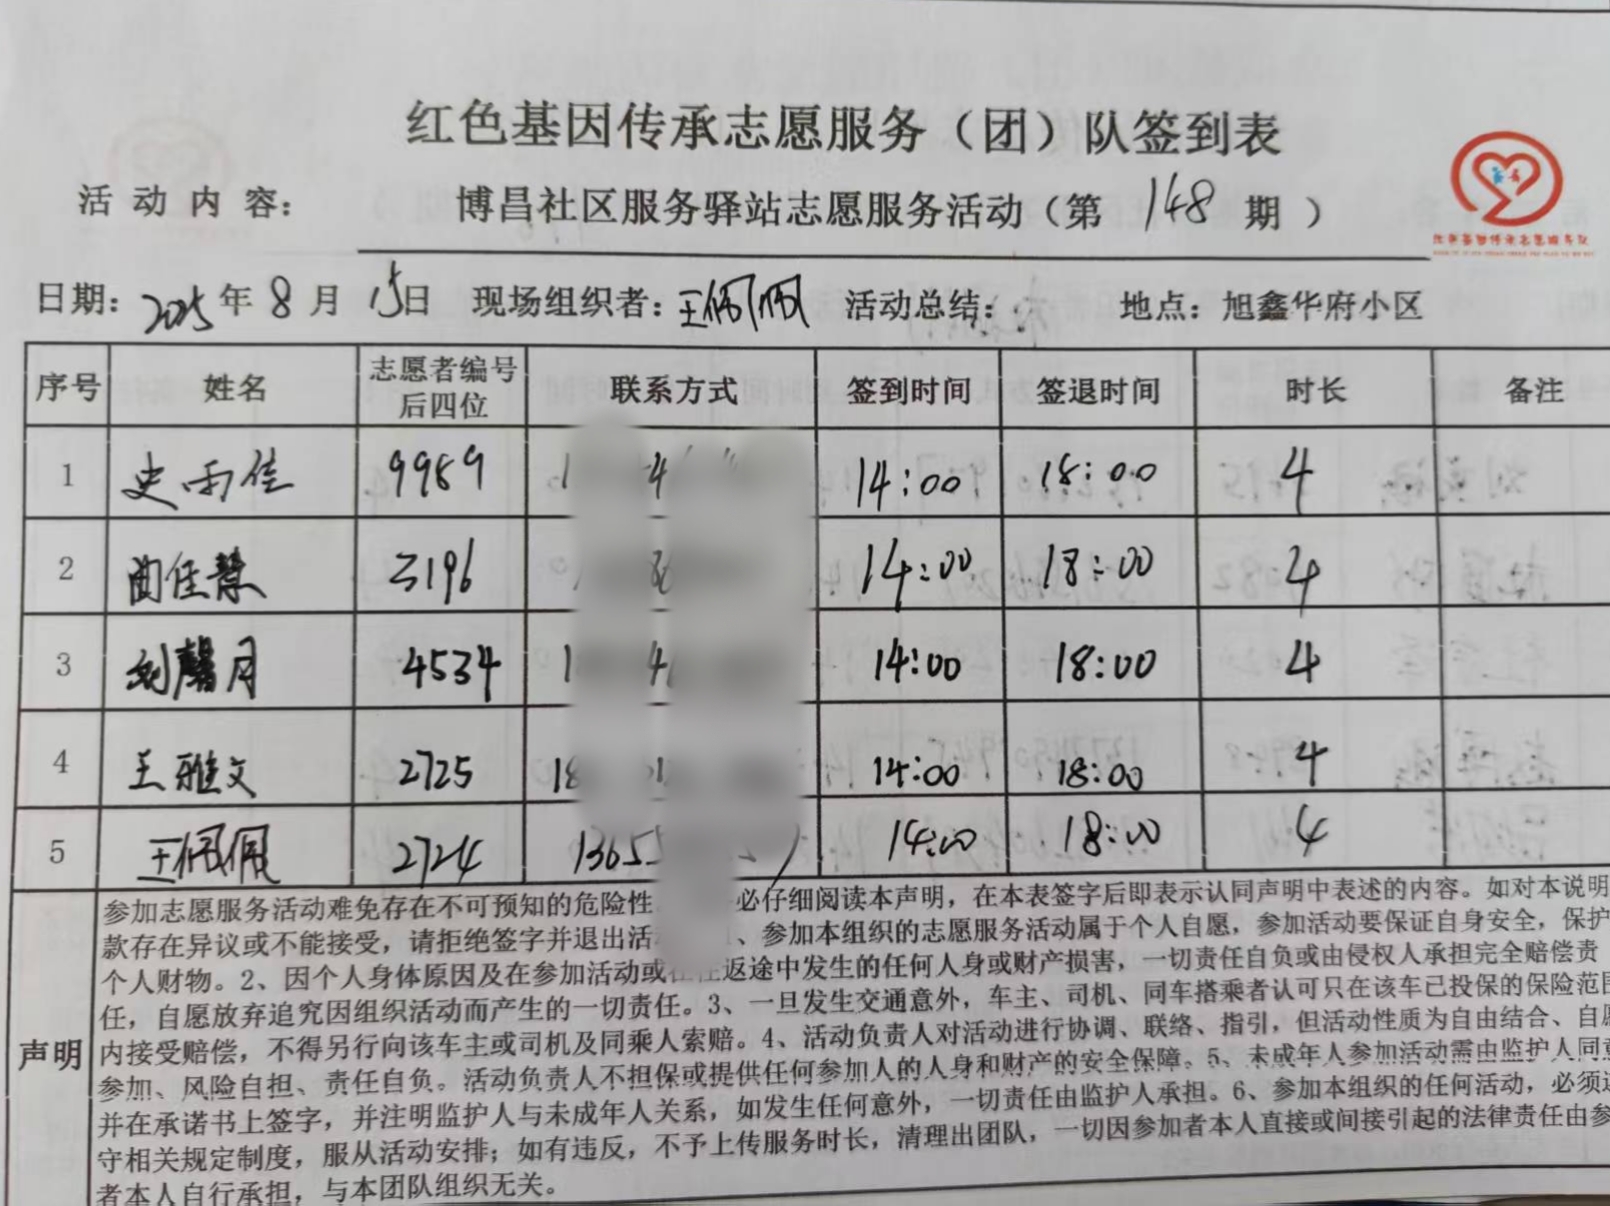 红色基因传承志愿服务（团）队签到表
活动内容： 博昌社区服务驿站志愿服务活动（第 148 期 ）
日期：2025年8月15日 现场组织者：王佩佩 活动总结： 地点：旭鑫华府小区
序号 姓名 志愿者编号后四位 联系方式 签到时间 签退时间 时长 备注
1 史雨佳 9989 14:00 18:00 4
2 曲佳慧 3196 14:00 18:00 4
3 刘馨月 4534 14:00 18:00 4
4 王雅文 2725 18 14:00 18:00 4
5 王佩佩 2724 1365 14:00 18:00 4
声明
参加志愿服务活动难免存在不可预知的危险性 必仔细阅读本声明，在本表签字后即表示认同声明中表述的内容。如对本说明
款存在异议或不能接受，请拒绝签字并退出活 、参加本组织的志愿服务活动属于个人自愿，参加活动要保证自身安全，保护
个人财物。2、因个人身体原因及在参加活动或往返途中发生的任何人身或财产损害，一切责任自负或由侵权人承担完全赔偿责
任，自愿放弃追究因组织活动而产生的一切责任。3、一旦发生交通意外，车主、司机、同车搭乘者认可只在该车已投保的保险范围
内接受赔偿，不得另行向该车主或司机及同乘人索赔。4、活动负责人对活动进行协调、联络、指引，但活动性质为自由结合、自愿
参加、风险自担、责任自负。活动负责人不担保或提供任何参加人的人身和财产的安全保障。5、未成年人参加活动需由监护人同意
并在承诺书上签字，并注明监护人与未成年人关系，如发生任何意外，一切责任由监护人承担。6、参加本组织的任何活动，必须遵
守相关规定制度，服从活动安排；如有违反，不予上传服务时长，清理出团队，一切因参加者本人直接或间接引起的法律责任由参
者本人自行承担，与本团队组织无关。